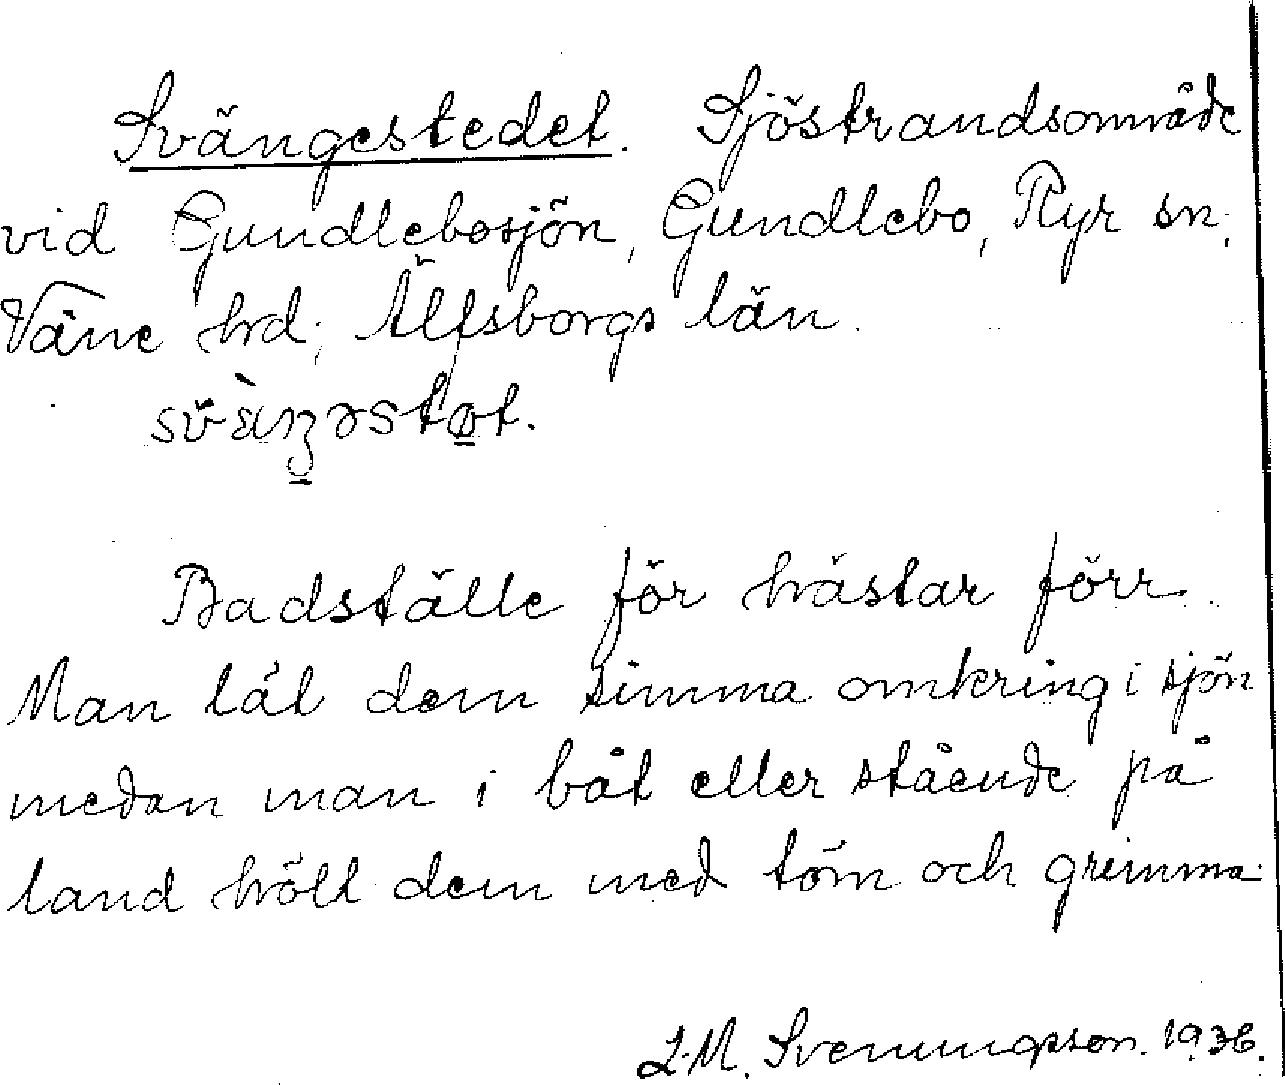 Svängestedet. Sjöstrandsområde
vid Gundlebosjön, Gundlebo, Ryr sn,
Väne hrd, Älfsborgs län.
Badställe för hästar förr.
Man lät dem simma omkring i sjön
medan man i båt eller stående på
land höll dem med töm och grimma.
L.M. Svenungsson. 1936.